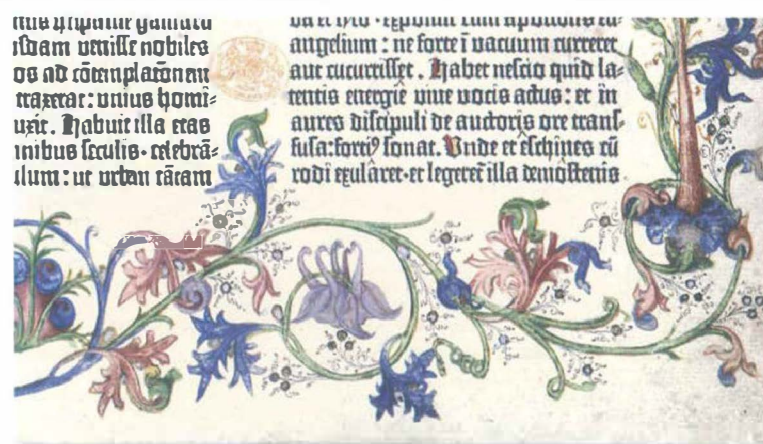 venisse nobiles
os ad cōtemplatōnem
traxerat : unius homi=
uxit . Habuit illa etas
seculis · celebrā=
ilum : ut urbem tātam
angelium : ne forte ī vacuum curreret
aut cucurrisset . Habet nescio quid la=
tentis energie vive vocis actus : et in
aures discipuli de auctoris ore trans=
fusa : fortiꝰ sonat . Unde et eschines cū
rodi exularet · et legeret̄ illa demostenis